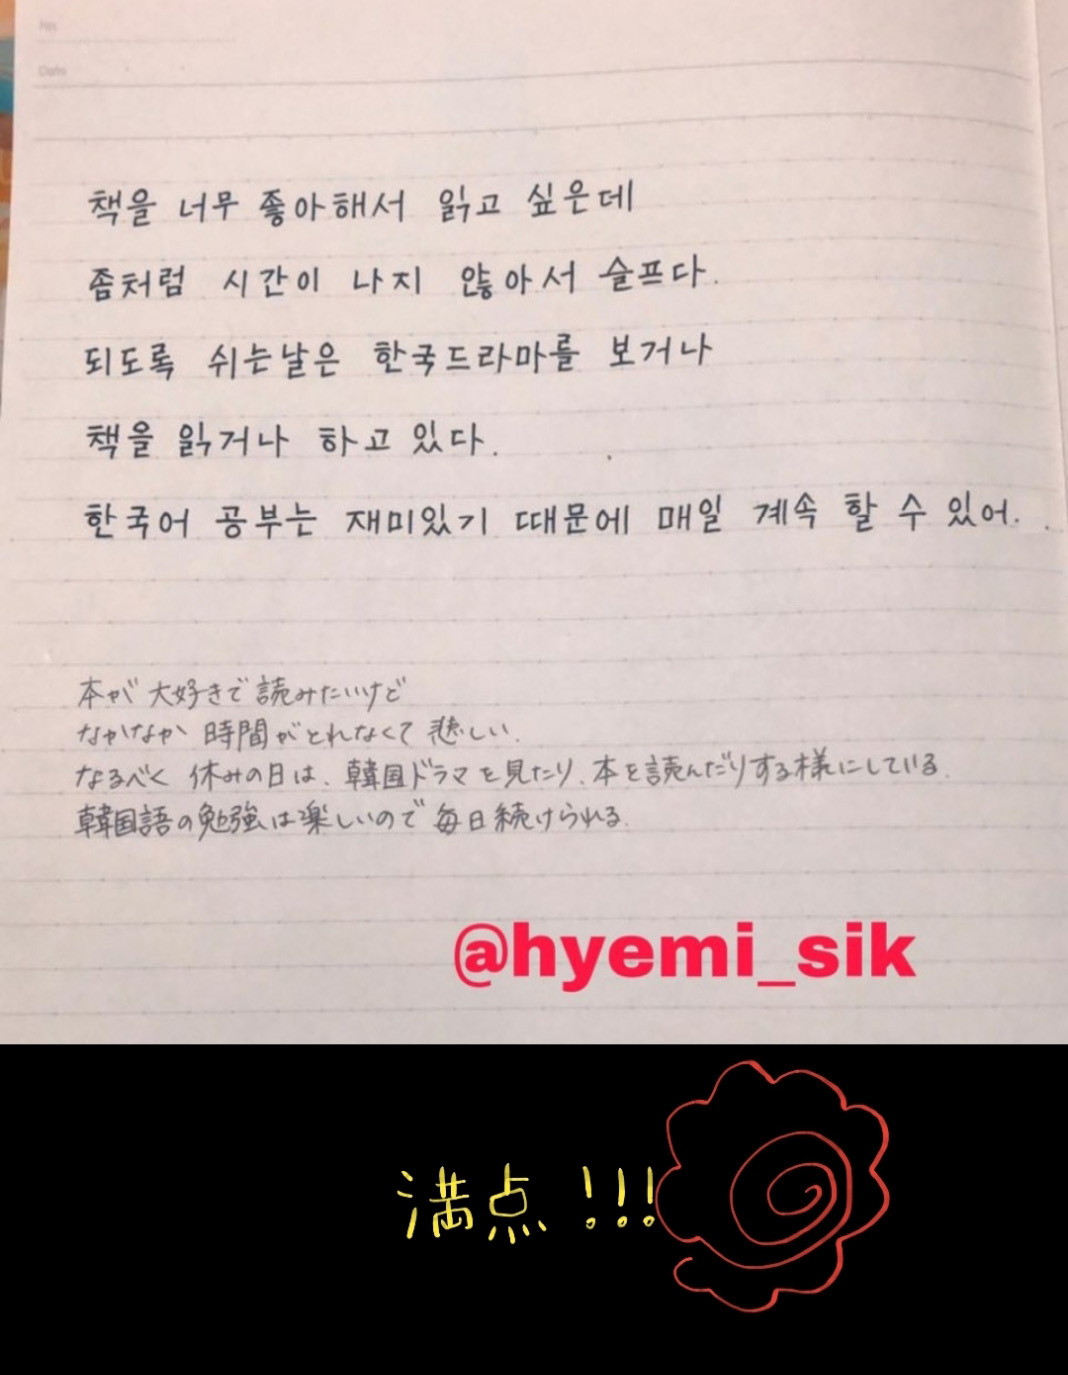 No.
Date
책을 너무 좋아해서 읽고 싶은데
좀처럼 시간이 나지 않아서 슬프다.
되도록 쉬는날은 한국드라마를 보거나
책을 읽거나 하고 있다.
한국어 공부는 재미있기 때문에 매일 계속 할 수 있어.
本が大好きで読みたいけど
なかなか 時間がとれなくて 悲しい.
なるべく 休みの日は、韓国ドラマを見たり、本を読んだりする様にしている.
韓国語の勉強は楽しいので 毎日続けられる.
@hyemi_sik
満点!!!